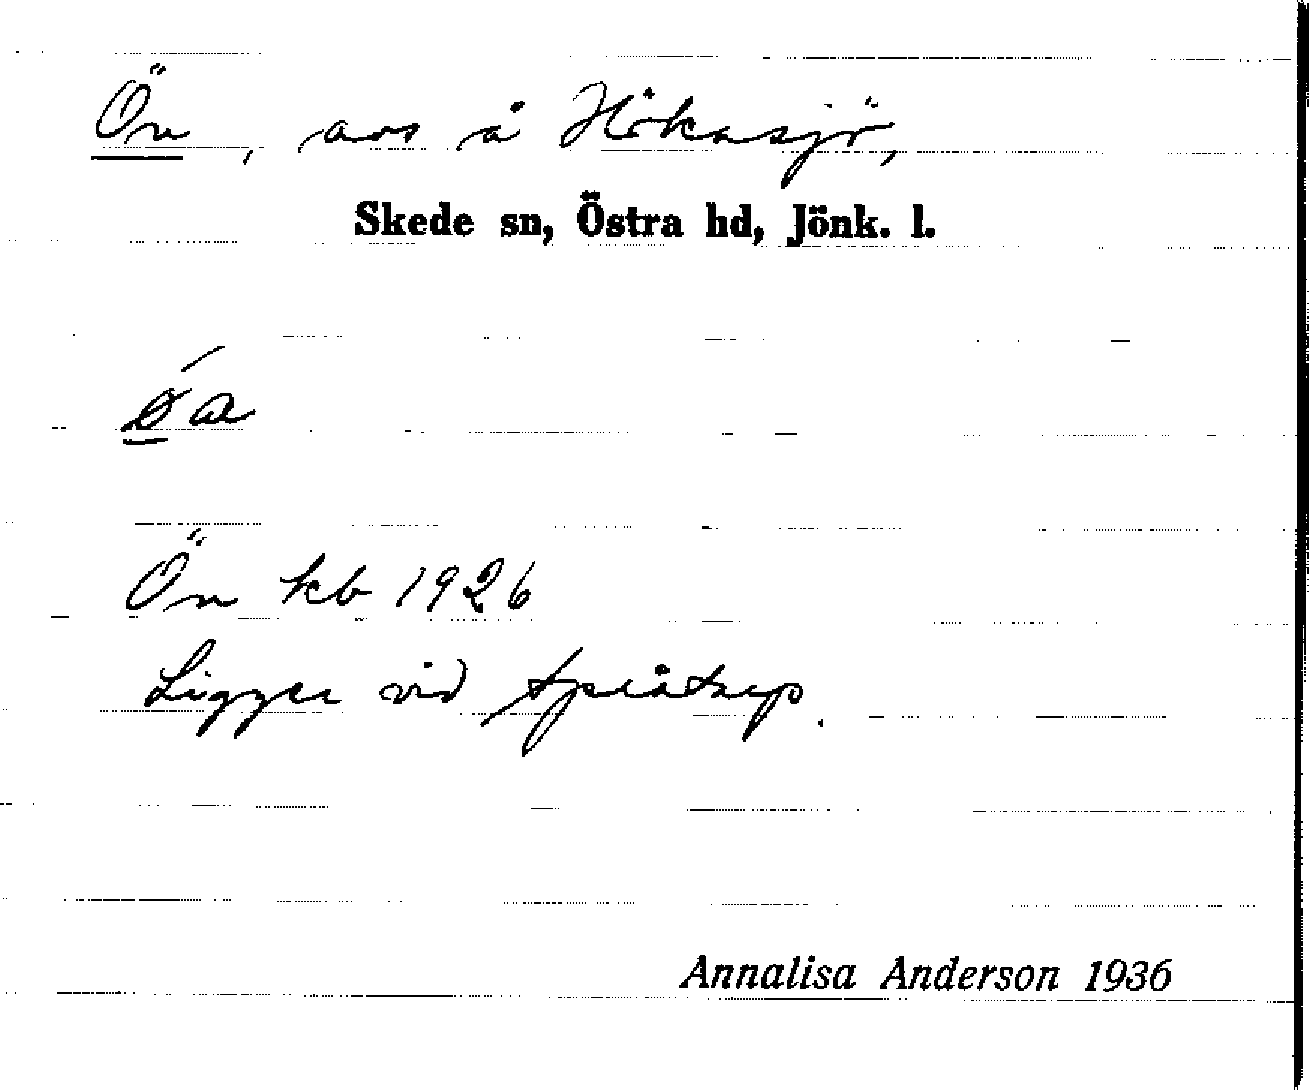 Ön, avs å Hökasjö,
Skede sn, Östra hd, Jönk. l.
Ön kb 1926
Ligger vid
Annalisa Anderson 1936